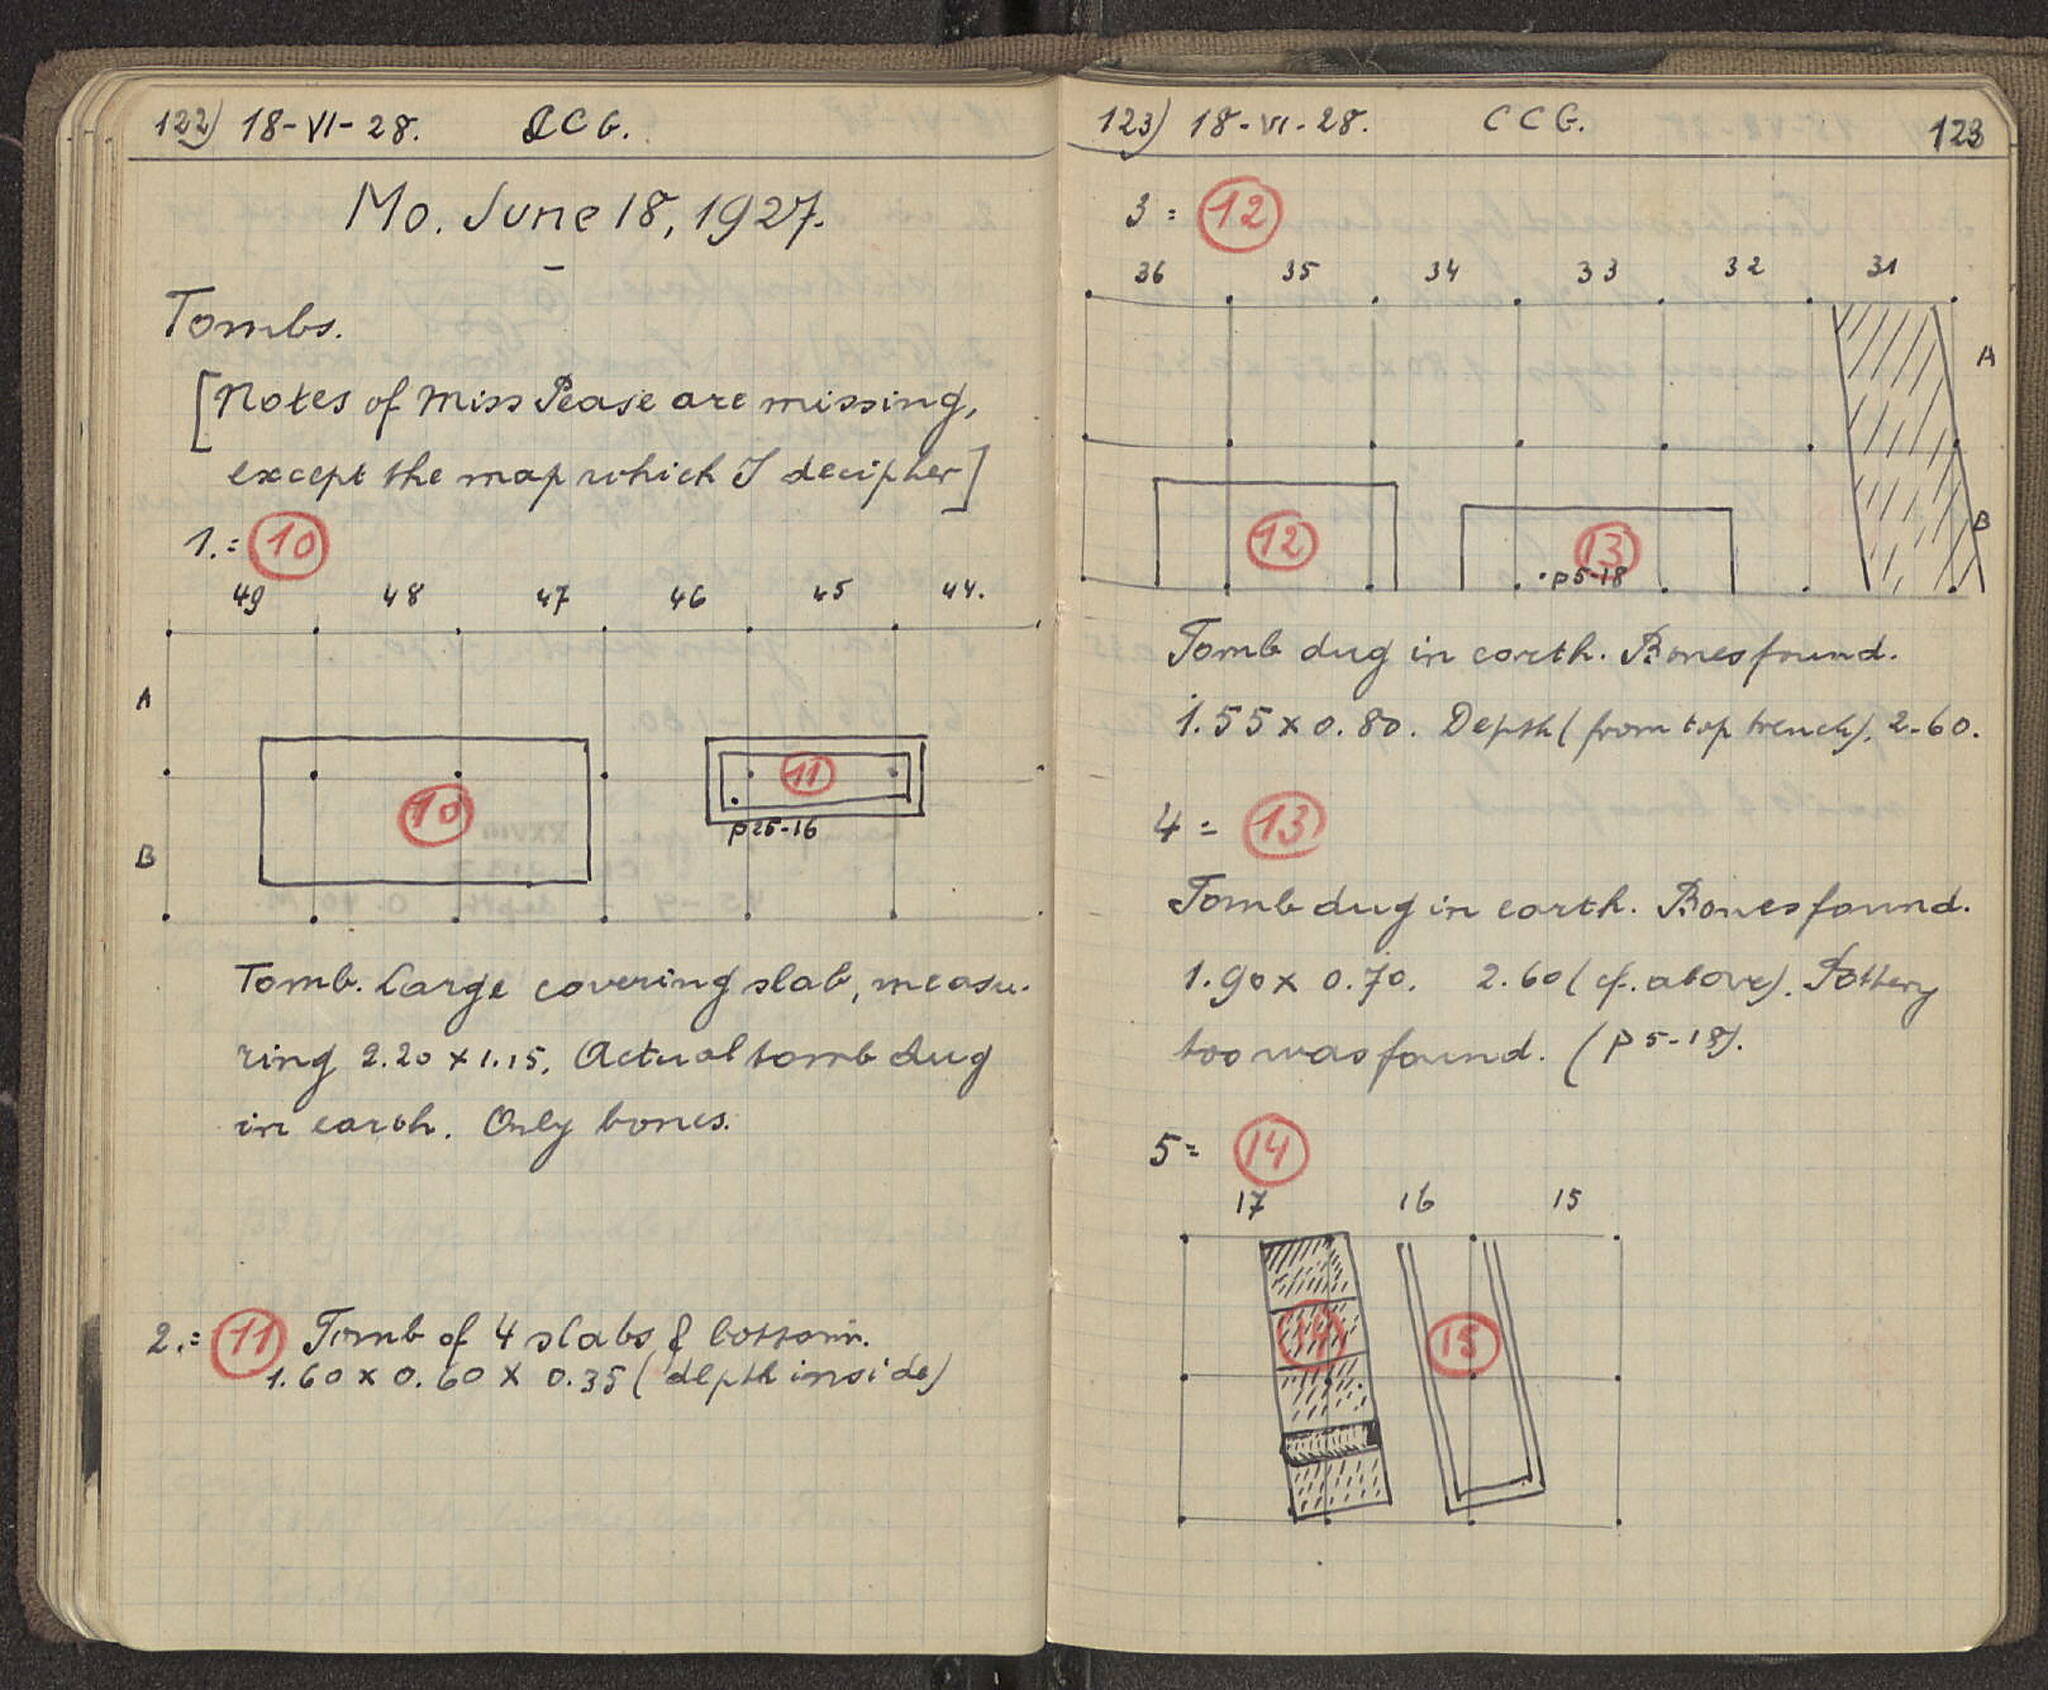 122) 18-VI-28. CCG.
Mo. June 18, 1927.
Tombs.
[Notes of Miss Pease are missing,
except the map which I decipher]
1.= 10
49 48 47 46 45 44.
A
10 11
p25-16
B
Tomb. Large covering slab, measu-
ring 2.20 x 1.15. Actual tomb dug
in earth. Only bones.
2.= 11 Tomb of 4 slabs & bottom.
1.60 x 0.60 x 0.35 (depth inside)
123) 18-VI-28. CCG. 123
3= 12
36 35 34 33 32 31
A
12 13 B
p5-18
Tomb dug in earth. Bones found.
1.55 x 0.80. Depth (from top trench). 2.60.
4= 13
Tomb dug in earth. Bones found.
1.90 x 0.70. 2.60 (cf. above). Pottery
too was found. (p 5-18).
5= 14
17 16 15
14 15